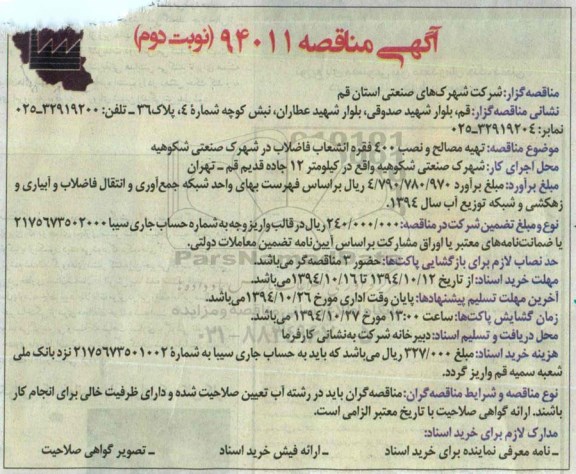 آگهی مناقصه ۹۴۰۱۱ (نوبت دوم)
مناقصه‌گزار: شرکت شهرک‌های صنعتی استان قم
نشانی مناقصه‌گزار: قم، بلوار شهید صدوقی، بلوار شهید عطاران، نبش کوچه شمارهٔ ۴، پلاک ۳۶ ـ تلفن: ۳۲۹۱۹۲۰۰ـ۰۲۵
نمابر: ۳۲۹۱۹۲۰۴ـ۰۲۵
موضوع مناقصه: تهیه مصالح و نصب ۴۰۰ فقره انشعاب فاضلاب در شهرک صنعتی شکوهیه
محل اجرای کار: شهرک صنعتی شکوهیه واقع در کیلومتر ۱۲ جاده قدیم قم ـ تهران
مبلغ برآورد: مبلغ برآورد ۴/۷۹۰/۷۸۰/۹۷۰ ریال براساس فهرست بهای واحد شبکه جمع‌آوری و انتقال فاضلاب و آبیاری و
زهکشی و شبکه توزیع آب سال ۱۳۹۴.
نوع و مبلغ تضمین شرکت در مناقصه: ۲۴۰/۰۰۰/۰۰۰ ریال در قالب واریز وجه به شماره حساب جاری سیبا ۲۱۷۵۶۷۳۵۰۲۰۰۰
یا ضمانت‌نامه‌های معتبر یا اوراق مشارکت براساس آیین‌نامه تضمین معاملات دولتی.
حد نصاب لازم برای بازگشایی پاکت‌ها: حضور ۳ مناقصه‌گر می‌باشد.
مهلت خرید اسناد: از تاریخ ۱۳۹۴/۱۰/۱۲ تا ۱۳۹۴/۱۰/۱۶ می‌باشد.
آخرین مهلت تسلیم پیشنهادها: پایان وقت اداری مورخ ۱۳۹۴/۱۰/۲۶ می‌باشد.
زمان گشایش پاکت‌ها: ساعت ۱۳:۰۰ مورخ ۱۳۹۴/۱۰/۲۷ می‌باشد.
محل دریافت و تسلیم اسناد: دبیرخانه شرکت به‌نشانی کارفرما
هزینه خرید اسناد: مبلغ ۳۲۷/۰۰۰ ریال می‌باشد که باید به حساب جاری سیبا به شمارهٔ ۲۱۷۵۶۷۳۵۰۱۰۰۲ نزد بانک ملی
شعبه سمیه قم واریز گردد.
نوع مناقصه و شرایط مناقصه‌گران: مناقصه‌گران باید در رشته آب تعیین صلاحیت شده و دارای ظرفیت خالی برای انجام کار
باشند. ارائه گواهی صلاحیت با تاریخ معتبر الزامی است.
مدارک لازم برای خرید اسناد:
ـ نامه معرفی نماینده برای خرید اسناد ـ ارائه فیش خرید اسناد ـ تصویر گواهی صلاحیت